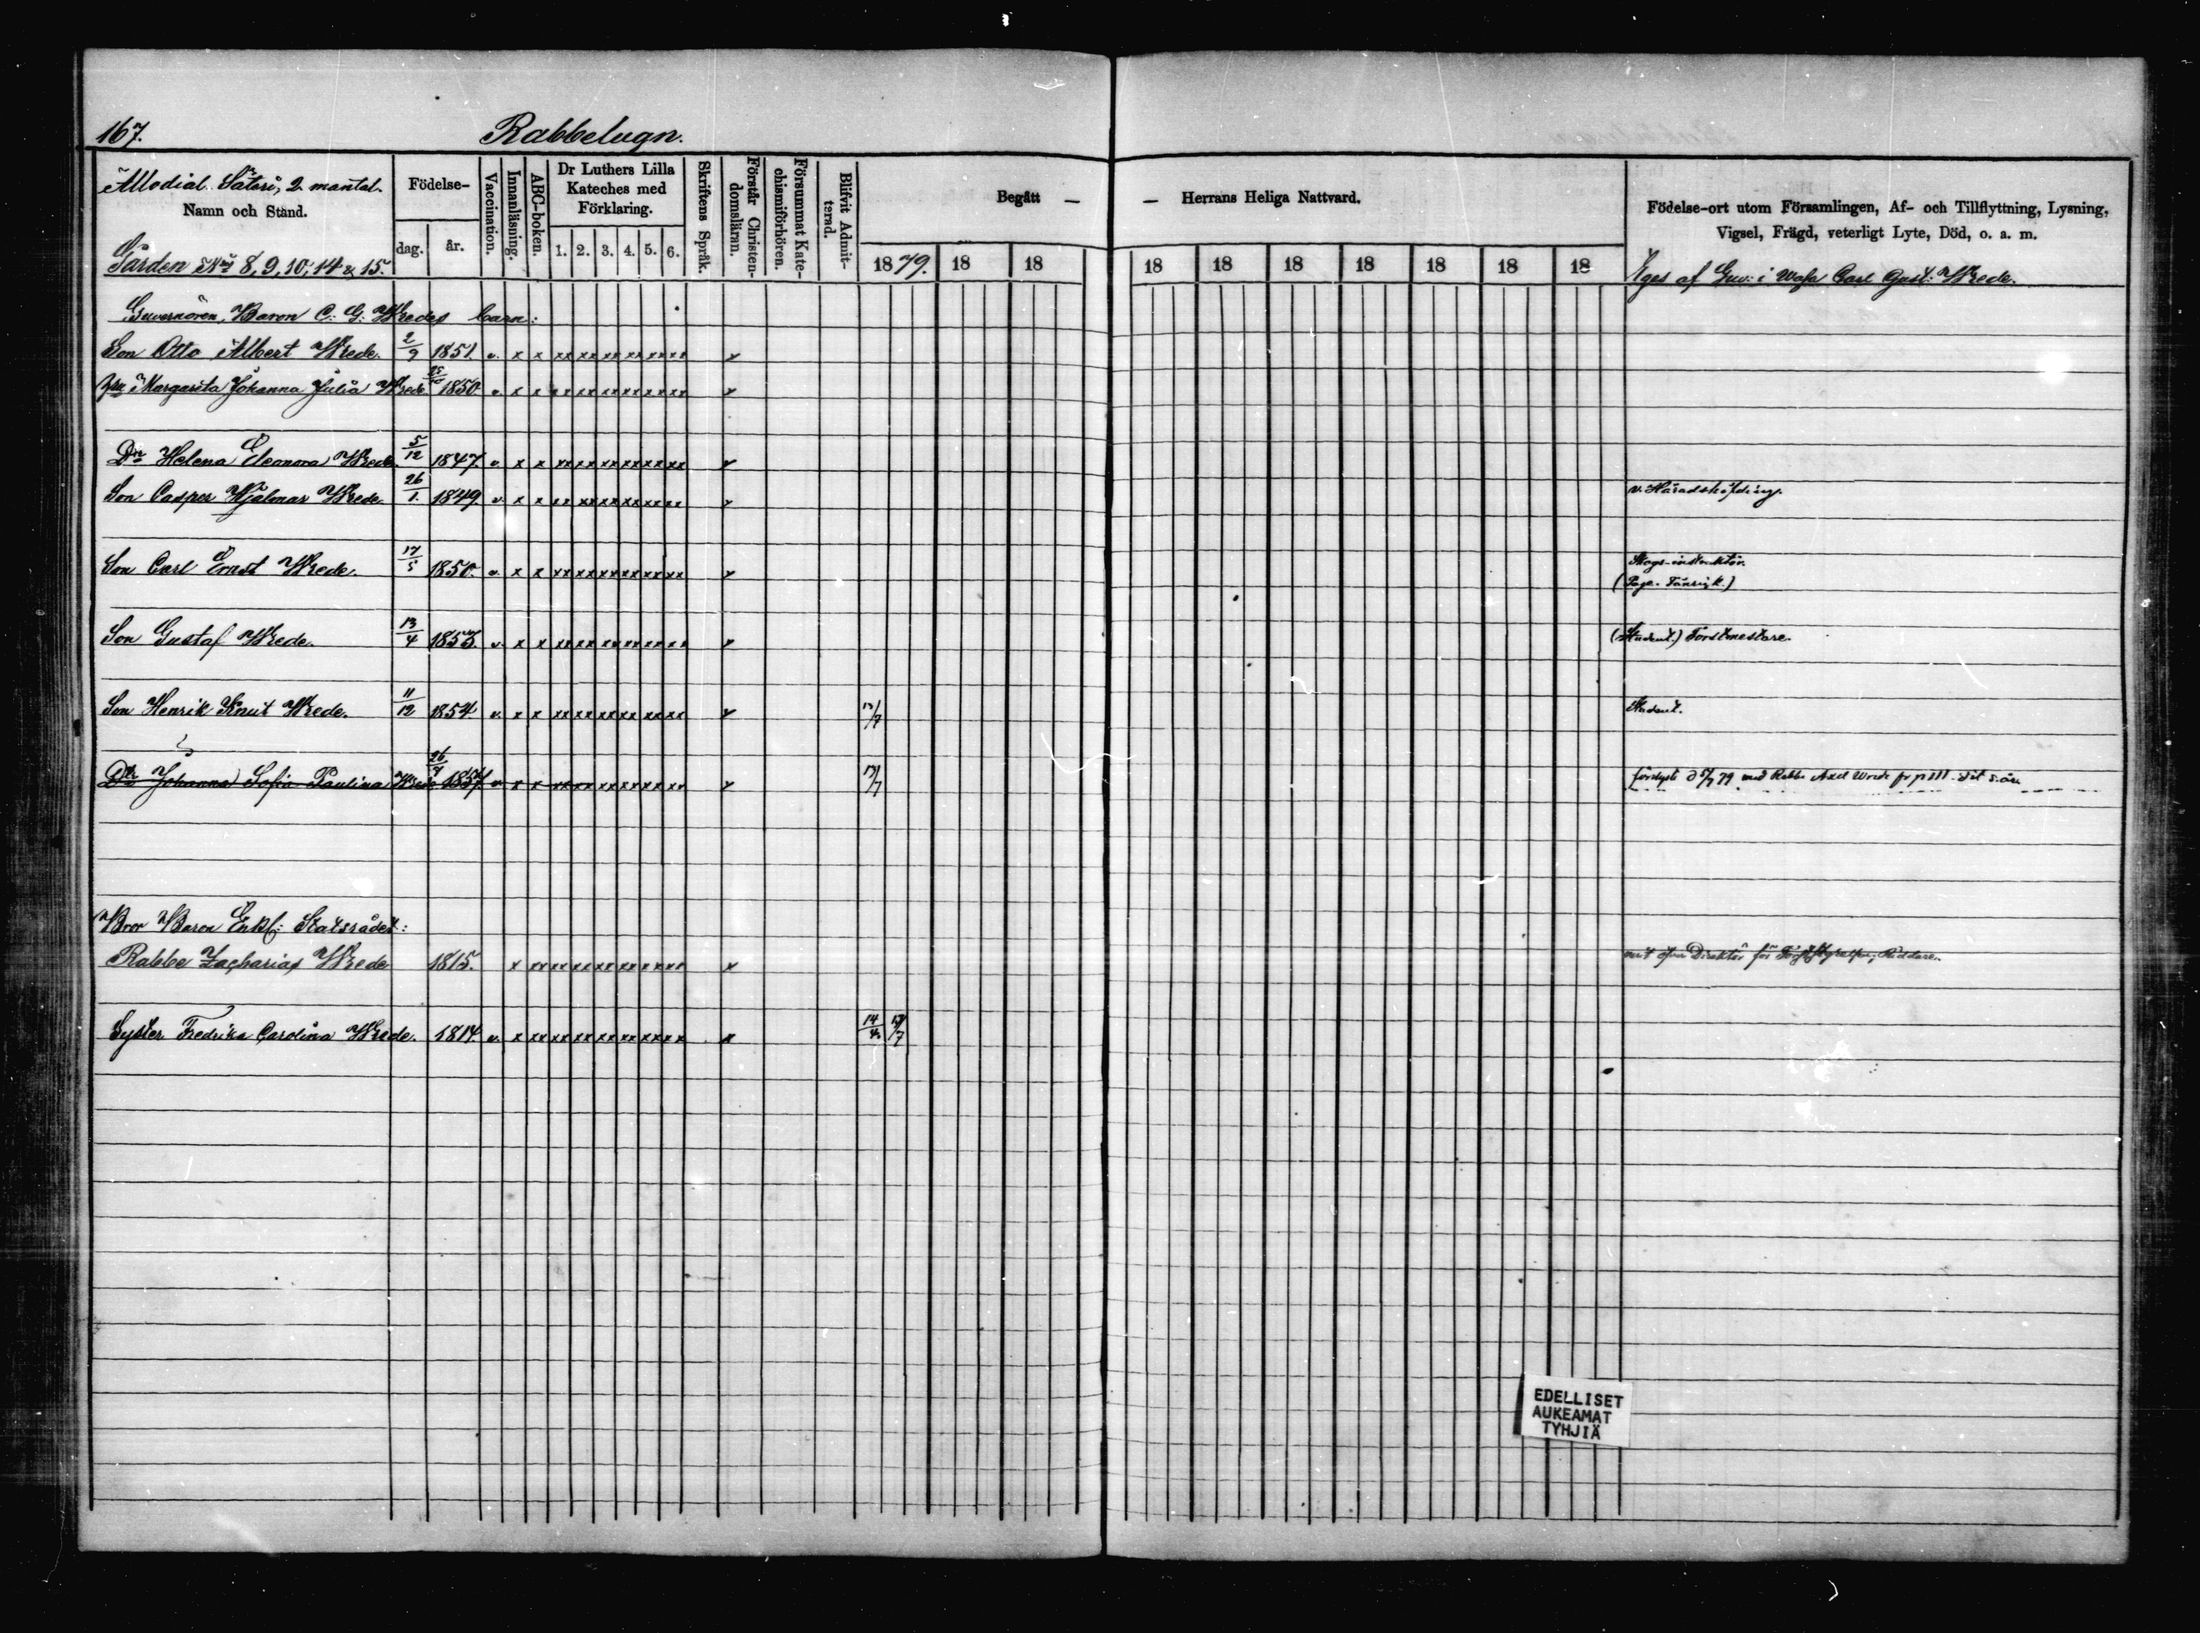 167.
Rabbelugn.
Allodial Säteri, 2 mantal.
Namn och Stånd.
Gården Nris 8, 9, 10, 14 & 15.
Födelse-
dag.
år.
Vaccination.
Innanläsning.
ABC-boken.
Dr Luthers Lilla
Kateches med
Förklaring.
1. 2. 3. 4. 5. 6.
Skriftens Språk.
Förstår Christen-
domsläran.
Försummat Kate-
chismiförhören.
Blifvit Admit-
terad.
Begått —
— Herrans Heliga Nattvard.
1879. 18 18 18 18 18 18 18 18 18
Födelse-ort utom Församlingen, Af- och Tillflyttning, Lysning,
Vigsel, Frägd, veterligt Lyte, Död, o. a. m.
Eges af Guv: i Wasa Carl Gust: Wrede.
Guvernören, Baron C: G: Wredes barn:
Son Otto Albert Wrede. 2/9 1851. v. x x xx xx xx xx xx xx
Margareta Johanna Julia Wrede 1850. v. x x xx xx xx xx xx xx
Dr Helena Eleonora Wrede. 5/12 1847. v. x x xx xx xx xx xx xx
Son Casper Hjalmar Wrede. 26/1. 1849. v. x x xx xx xx xx xx xx v. Häradshöfding.
Son Carl Ernst Wrede. 17/5 1850. v. x x xx xx xx xx xx xx Skogs-instruktör.
(Page. Fänrik.)
Son Gustaf Wrede. 13/4 1853. v. x x xx xx xx xx xx xx (Student.) Forstmestare.
Son Henrik Knut Wrede. 11/12 1854. v. x x xx xx xx xx xx xx Student.
Dtr Johanna Sofia Paulina Wrede 1857. v. x x xx xx xx xx xx xx 79 med Rabbe Axel Wrede
Bror Baron Enkl: Statsrådet:
Rabbe Zacharias Wrede 1815. x xx xx xx xx xx xx xx x Direktör för Riddare.
Syster Fredrika Carolina Wrede. 1814. v. x xx xx xx xx xx xx xx x 14/4
EDELLISET
AUKEAMAT
TYHJIÄ